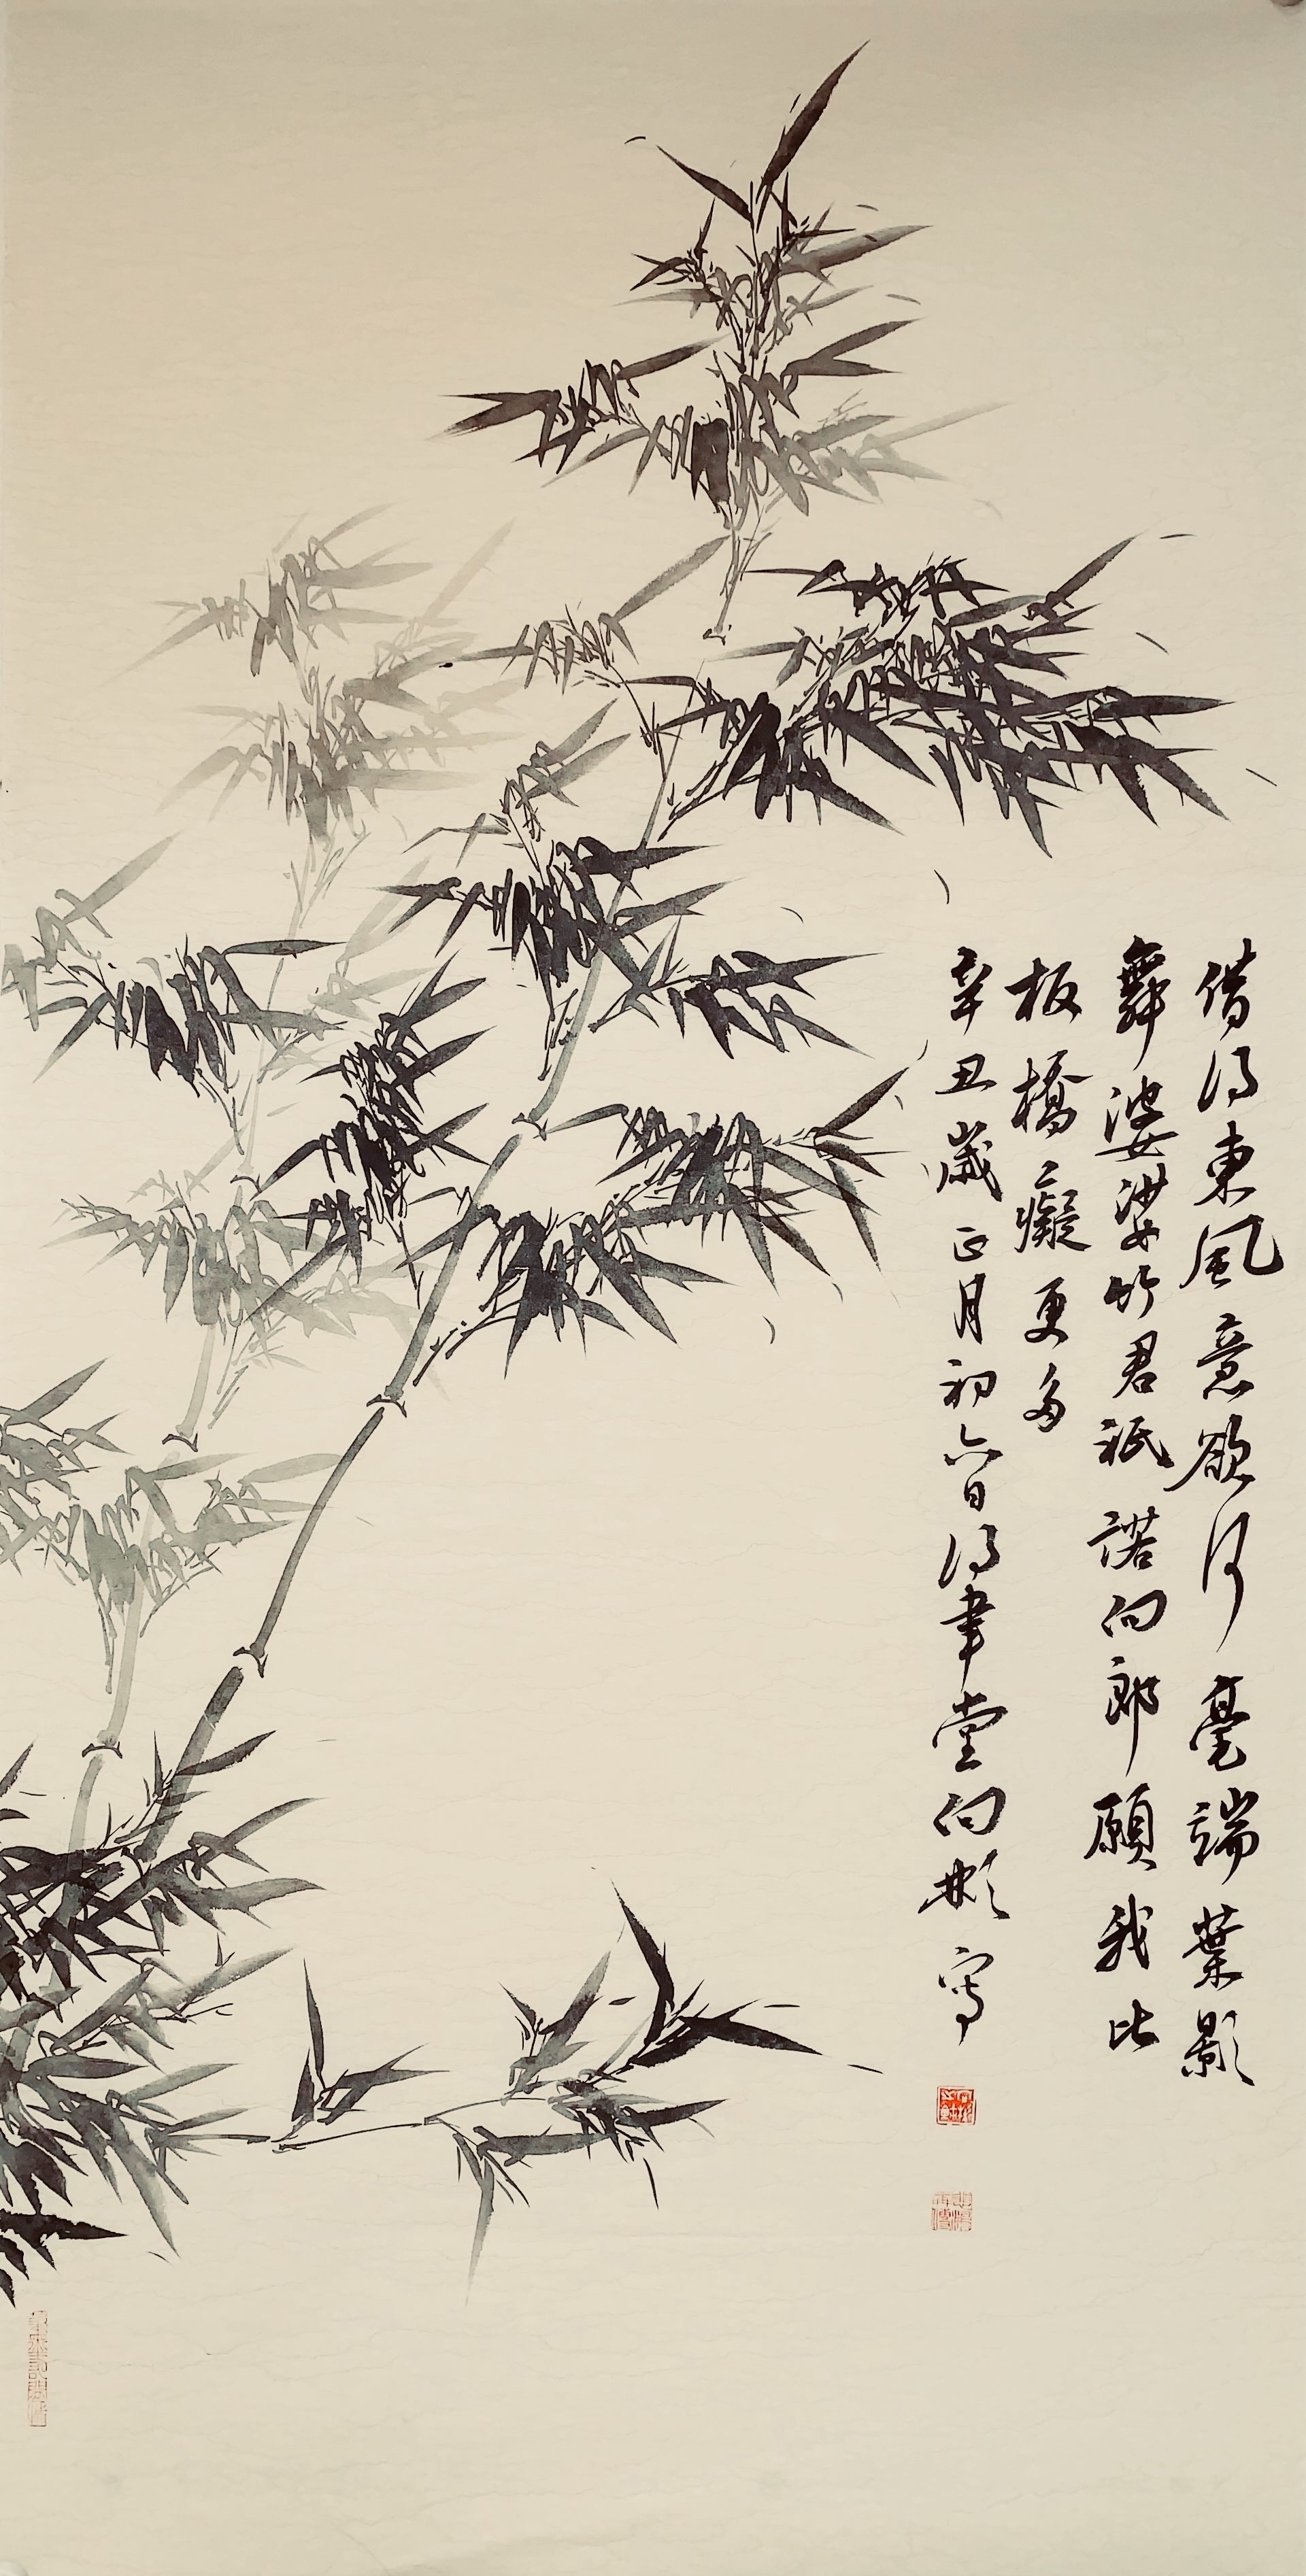 借得東風意欲何毫端葉影
舞婆娑竹君祇諾向郎願我比
板橋癡更多
辛丑歲正月初六日得聿堂向彬寫